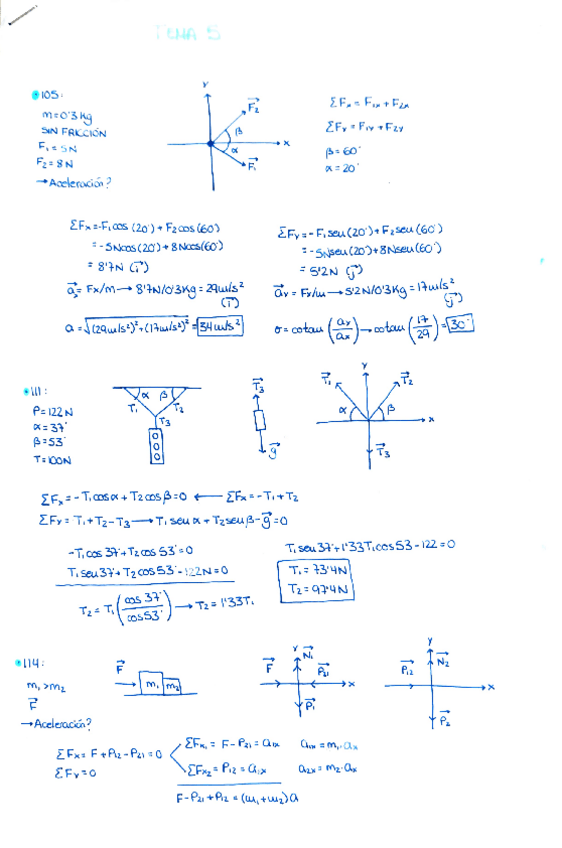 TEMA 5
105:
m=0'3 Kg
SIN FRICCIÓN
F₁=5N
F₂=8N
→Aceleración?
Y
F₂
β
α
X
F₁
ΣFx=F₁x+F₂x
ΣFy=F₁y+F₂y
β=60°
α=20°
ΣFx=-F₁cos(20°)+F₂cos(60°)
=-5Ncos(20°)+8Ncos(60°)
=8'7N (i)
a=Fx/m→8'7N/0'3Kg=29m/s²
(i)
a=√(29m/s²)²+(17m/s²)²=34m/s²
ΣFy=-F₁seu(20°)+F₂seu(60°)
=-5Nseu(20°)+8Nseu(60°)
=5'2N (j)
ay=Fy/m→5'2N/0'3Kg=17m/s²
(j)
σ=cotau(ay/ax)→cotau(17/29)=30°
111:
P=122N
α=37°
β=53°
T=100N
α β
T₁ T₂
T₃
T₃
g
Y
T₁ T₂
α β
X
T₃
ΣFx=-T₁cosα+T₂cosβ=0 ← ΣFx=-T₁+T₂
ΣFy=T₁+T₂-T₃→T₁seuα+T₂seuβ-g=0
-T₁cos37°+T₂cos53°=0
T₁seu37+T₂cos53°-122N=0
T₂=T₁(cos37°/cos53°)→T₂=1'33T₁
T₁seu37°+1'33T₁cos53-122=0
T₁=73'4N
T₂=97'4N
114:
m₁>m₂
F
→Aceleración?
F
m₁ m₂
Y N₁
F P₂₁
X
P₁
Y
N₂
P₁₂
X
P₂
ΣFx=F+P₁₂-P₂₁=0
ΣFy=0
ΣFx₁=F-P₂₁=a₁x a₁x=m₁·ax
ΣFx₂=P₁₂=a₁x a₂x=m₂·ax
F-P₂₁+P₁₂=(m₁+m₂)a